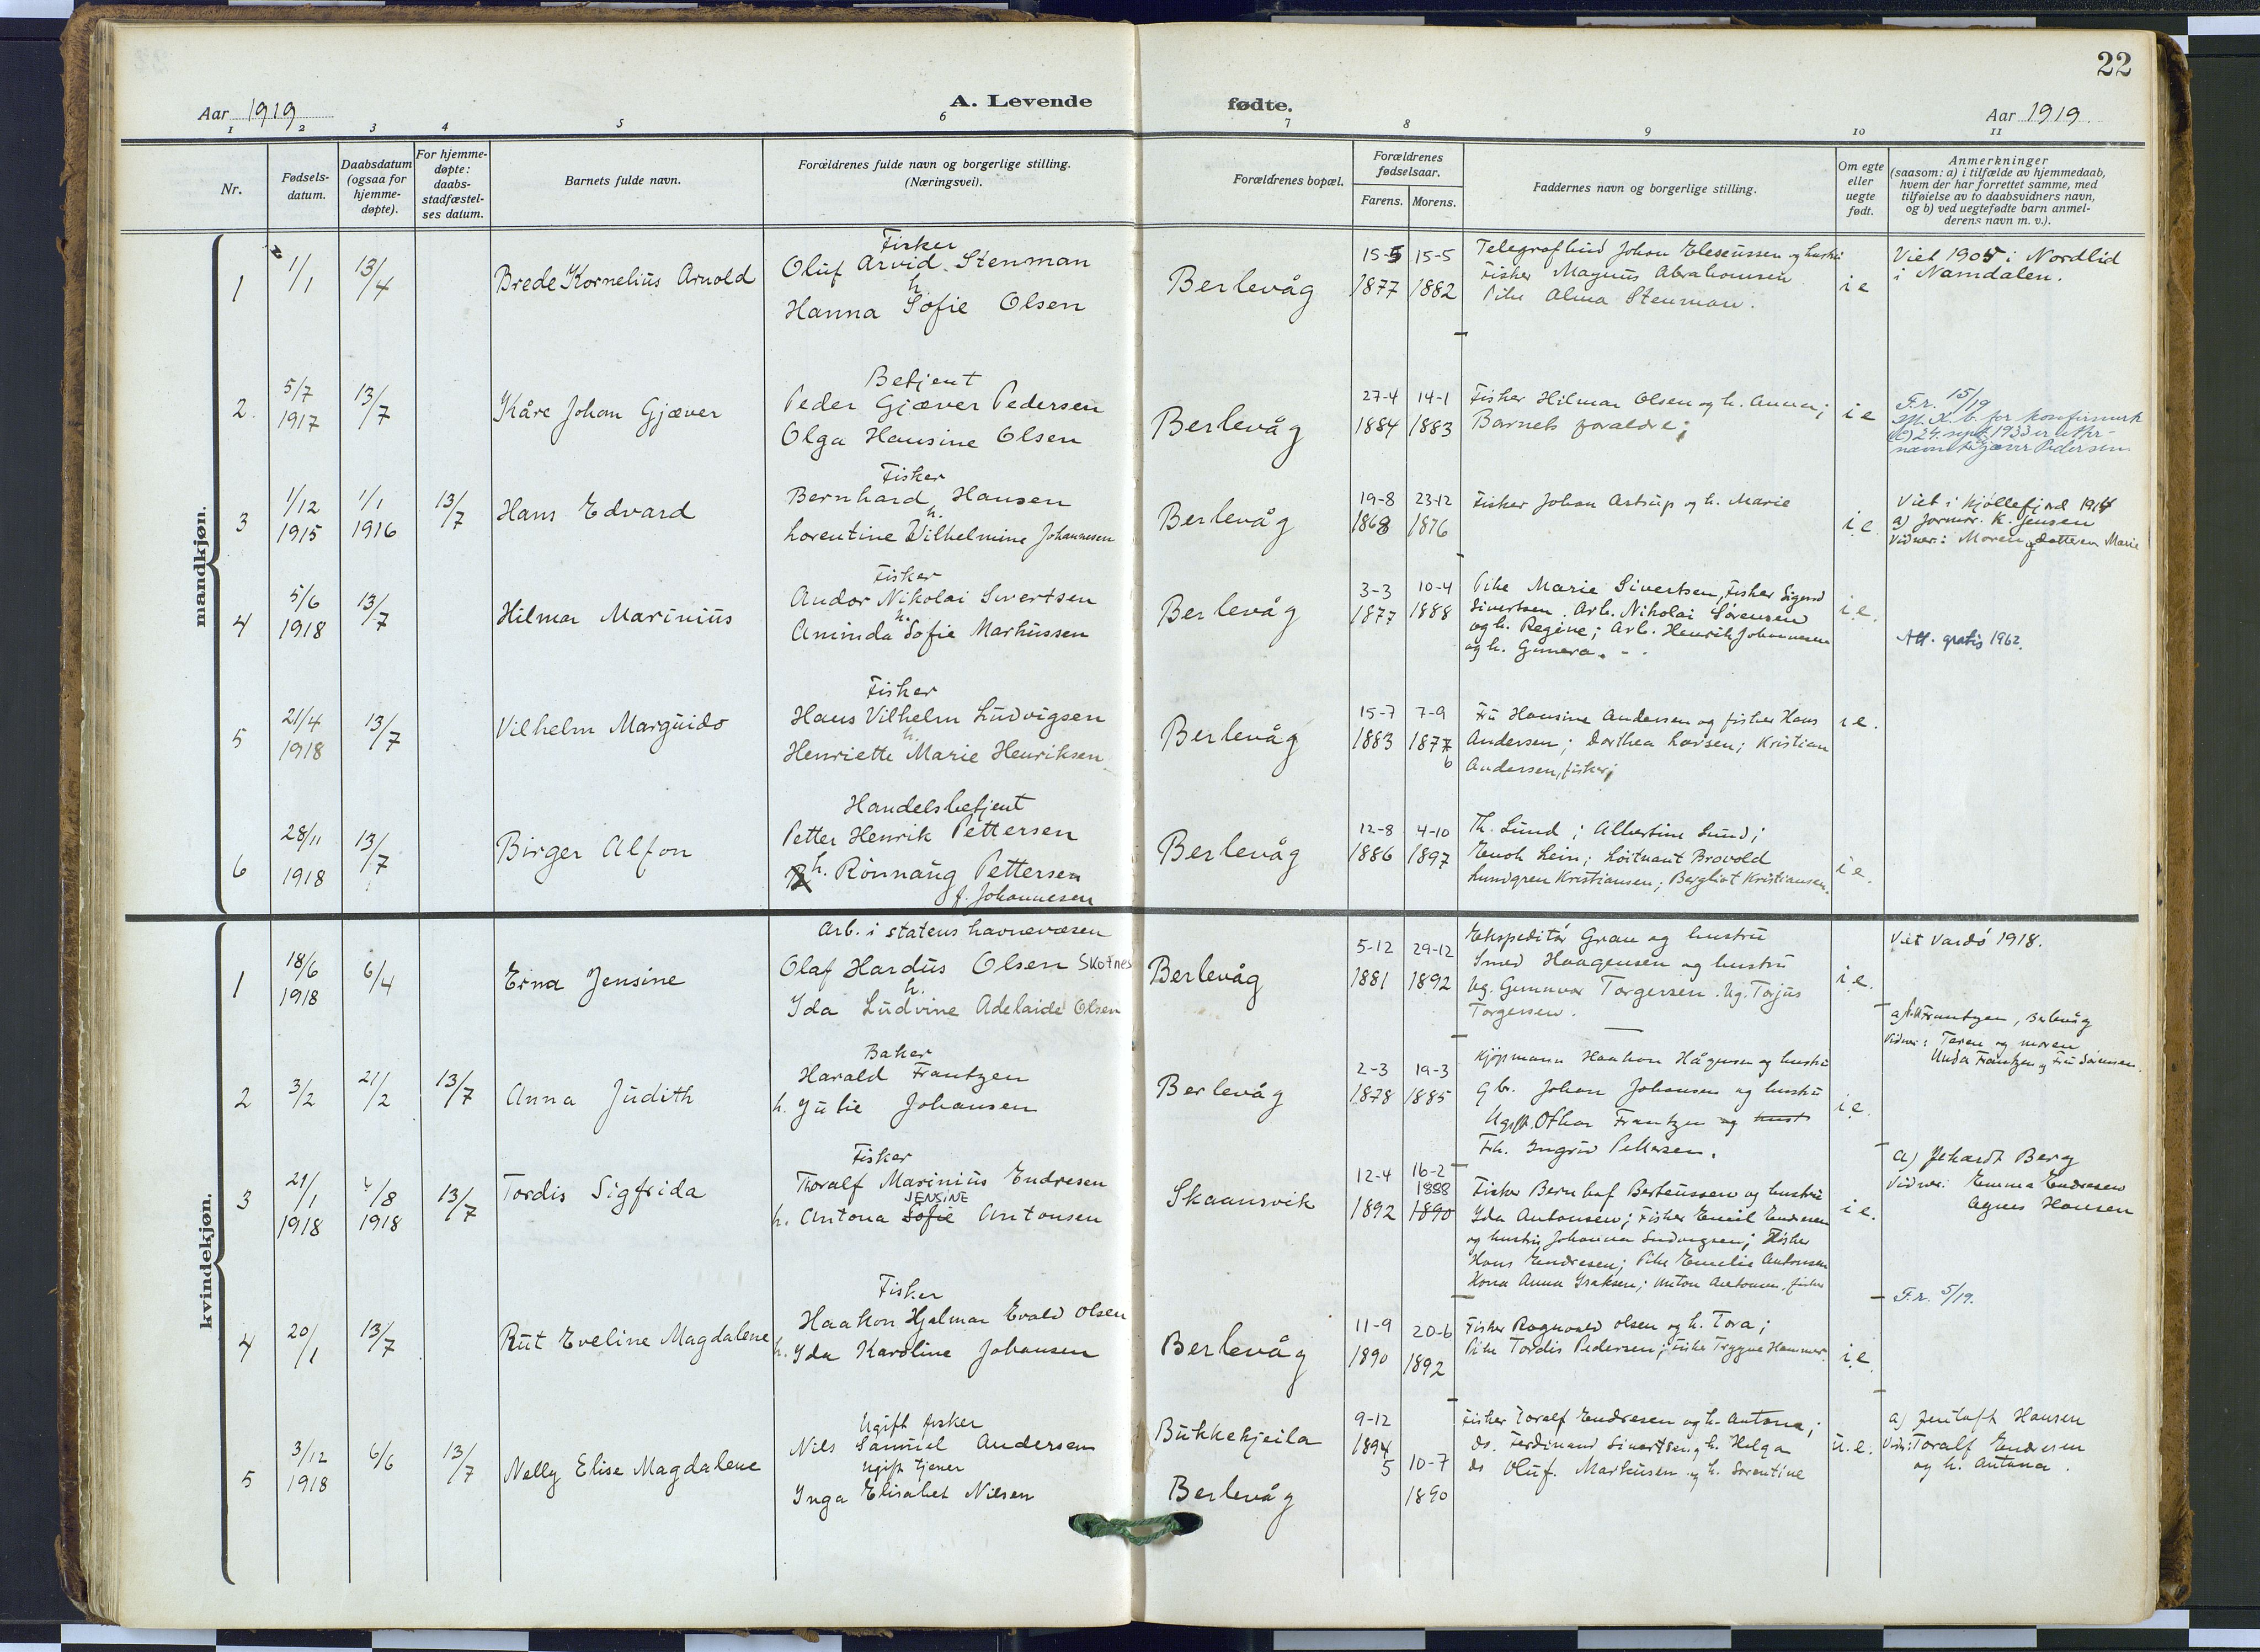 22
Aar 1919
A. Levende fødte.
Aar 1919.
1 2 3 4 5 6 7 8 9 10 11
Nr.
Fødsels-
datum.
Daabsdatum
(ogsaa for
hjemme-
døpte).
For hjemme-
døpte:
daabs-
stadfæstel-
ses datum.
Barnets fulde navn.
Forældrenes fulde navn og borgerlige stilling.
(Næringsvei).
Forældrenes bopæl.
Forældrenes
fødselsaar.
Farens. Morens.
Faddernes navn og borgerlige stilling.
Om egte
eller
uegte
født.
Anmerkninger
(saasom: a) i tilfælde av hjemmedaab,
hvem der har forrettet samme, med
tilføielse av to daabsvidners navn,
og b) ved uegtefødte barn anmel-
derens navn m. v.).
mandkjøn.
1
1/1
13/4
Brede Kornelius Arnold
Fisker
Oluf Arvid Stenman
h.
Hanna Sofie Olsen
Berlevåg
15-5 15-5
1877 1882
Telegrafbud Johan Eleseussen og hustru
Fisker Magnus Abrahamsen
Pike Alma Stenman.
i e
Viet 1905 i Nordlid
i Namdalen.
2.
5/7
1917
13/7
Kåre Johan Gjæver
Betjent
Peder Gjæver Pedersen
Olga Hansine Olsen
Berlevåg
27-4 14-1
1884 1883
Fisker Hilmar Olsen og h. Anna;
Barnets foraldre;
i e
F.r. 15/19
24. sept. 1933
Gjæver Pedersen
3
1/12
1915
1/1
1916
13/7
Hans Edvard
Fisker
Bernhard Hansen
h.
Lorentine Vilhelmine Johannesen
Berlevåg
19-8 23-12
1868 1876
Fisker Johan Astrup og h. Marie
i e.
Viet i Kjøllefjord 1914
a) Jormor. K. Jensen
Vidner: Moren og datteren Marie
4
5/6
1918
13/7
Hilmar Marinius
Fisker
Andor Nikolai Sivertsen
h.
Aminda Sofie Markussen
Berlevåg
3-3 10-4
1877 1888
Pike Marie Sivertsen, Fisker Sigurd
Sivertsen. Arb. Nikolai Sørensen
og h. Regine; Arb. Henrik Johannesen
og h. Gunvora.
i e.
Att. gratis 1962.
5
21/4
1918
13/7
Vilhelm Marguido
Fisker
Hans Vilhelm Ludvigsen
h.
Henriette Marie Henriksen
Berlevåg
15-7 7-9
1883 1877
6
Fru Hansine Andersen og fisker Hans
Andersen; Dorthea Larsen; Kristian
Andersen, fisker;
i e.
6
28/11
1918
13/7
Birger Alfon
Handelsbetjent
Petter Henrik Pettersen
h. Rønnaug Pettersen
f. Johannesen
Berlevåg
12-8 4-10
1886 1897
Th. Lund; Albertine Lund;
Enok Lein; Løitnant Brovold
Lundgren Kristiansen; Bergliot Kristiansen.
i e.
kvindekjøn.
1
18/6
1918
6/4
Erna Jensine
Arb. i statens havnevæsen
Olaf Hardus Olsen Skotnes
h.
Ida Ludvine Adelaide Olsen
Berlevåg
5-12 29-12
1881 1892
Ekspeditør Grau og hustru
Smed Haagensen og hustru
Ug. Gunnvor Torgersen. Ug. Torjus
Torgersen.
i e.
Viet Vardø 1918.
2
3/2
21/2
13/7
Anna Judith
Baker
Harald Frantzen
h. Julie Johansen
Berlevåg
2-3 19-3
1878 1885
Kjøpmann Haakon Hågensen og hustru
Gbr. Johan Johansen og hustru
Ugift. Othar Frantzen og hust
Frk. Ingrid Pettersen.
i e.
a) Frantzen, Berlevåg
Vidner: Faren og moren
Unda Frantzen og Fru Sørensen.
3
21/1
1918
/8
1918
13/7
Tordis Sigfrida
Fisker
Thoralf Marinius Endresen
JENSINE
h. Antona Sofie Antonsen
Skaansvik
12-4 16-2
1888
1892 1890
Fisker Bernhof Berteussen og hustru
Ida Antonsen; Fisker Emil Endresen
og hustru Johanna Ludvigsen; Fisker
Hans Endresen; Pike Emelie Antonsen
Kona Anna Isaksen; Anton Antonsen, fisker
i e.
a) Jekardt Berg
Vidner: Emma Endresen
Agnes Hansen
4
20/1
13/7
Rut Eveline Magdalene
Fisker
Haakon Hjalmar Evald Olsen
h. Ida Karoline Johansen
Berlevåg
11-9 20-6
1890 1892
Fisker Ragnvald Olsen og h. Tora;
Pike Tordis Pedersen; Fisker Trygve Hammer.
i e.
F.r. 5/19.
5
3/12
1918
6/6
13/7
Nelly Elise Magdalene
Ugift fisker
Nils Samuel Andersen
Ugift tjener
Inga Elisabet Nilsen
Bukkekjeila
Berlevåg
9-12
1894
5
10-7
1890
Fisker Toralf Endresen og h. Antona;
ds. Ferdinand Sivertsen og h. Helga
ds Oluf. Markusen og h. Lorentine
u. e.
a) Jentoft Hansen
Vidn: Toralf Endresen
og h. Antona.